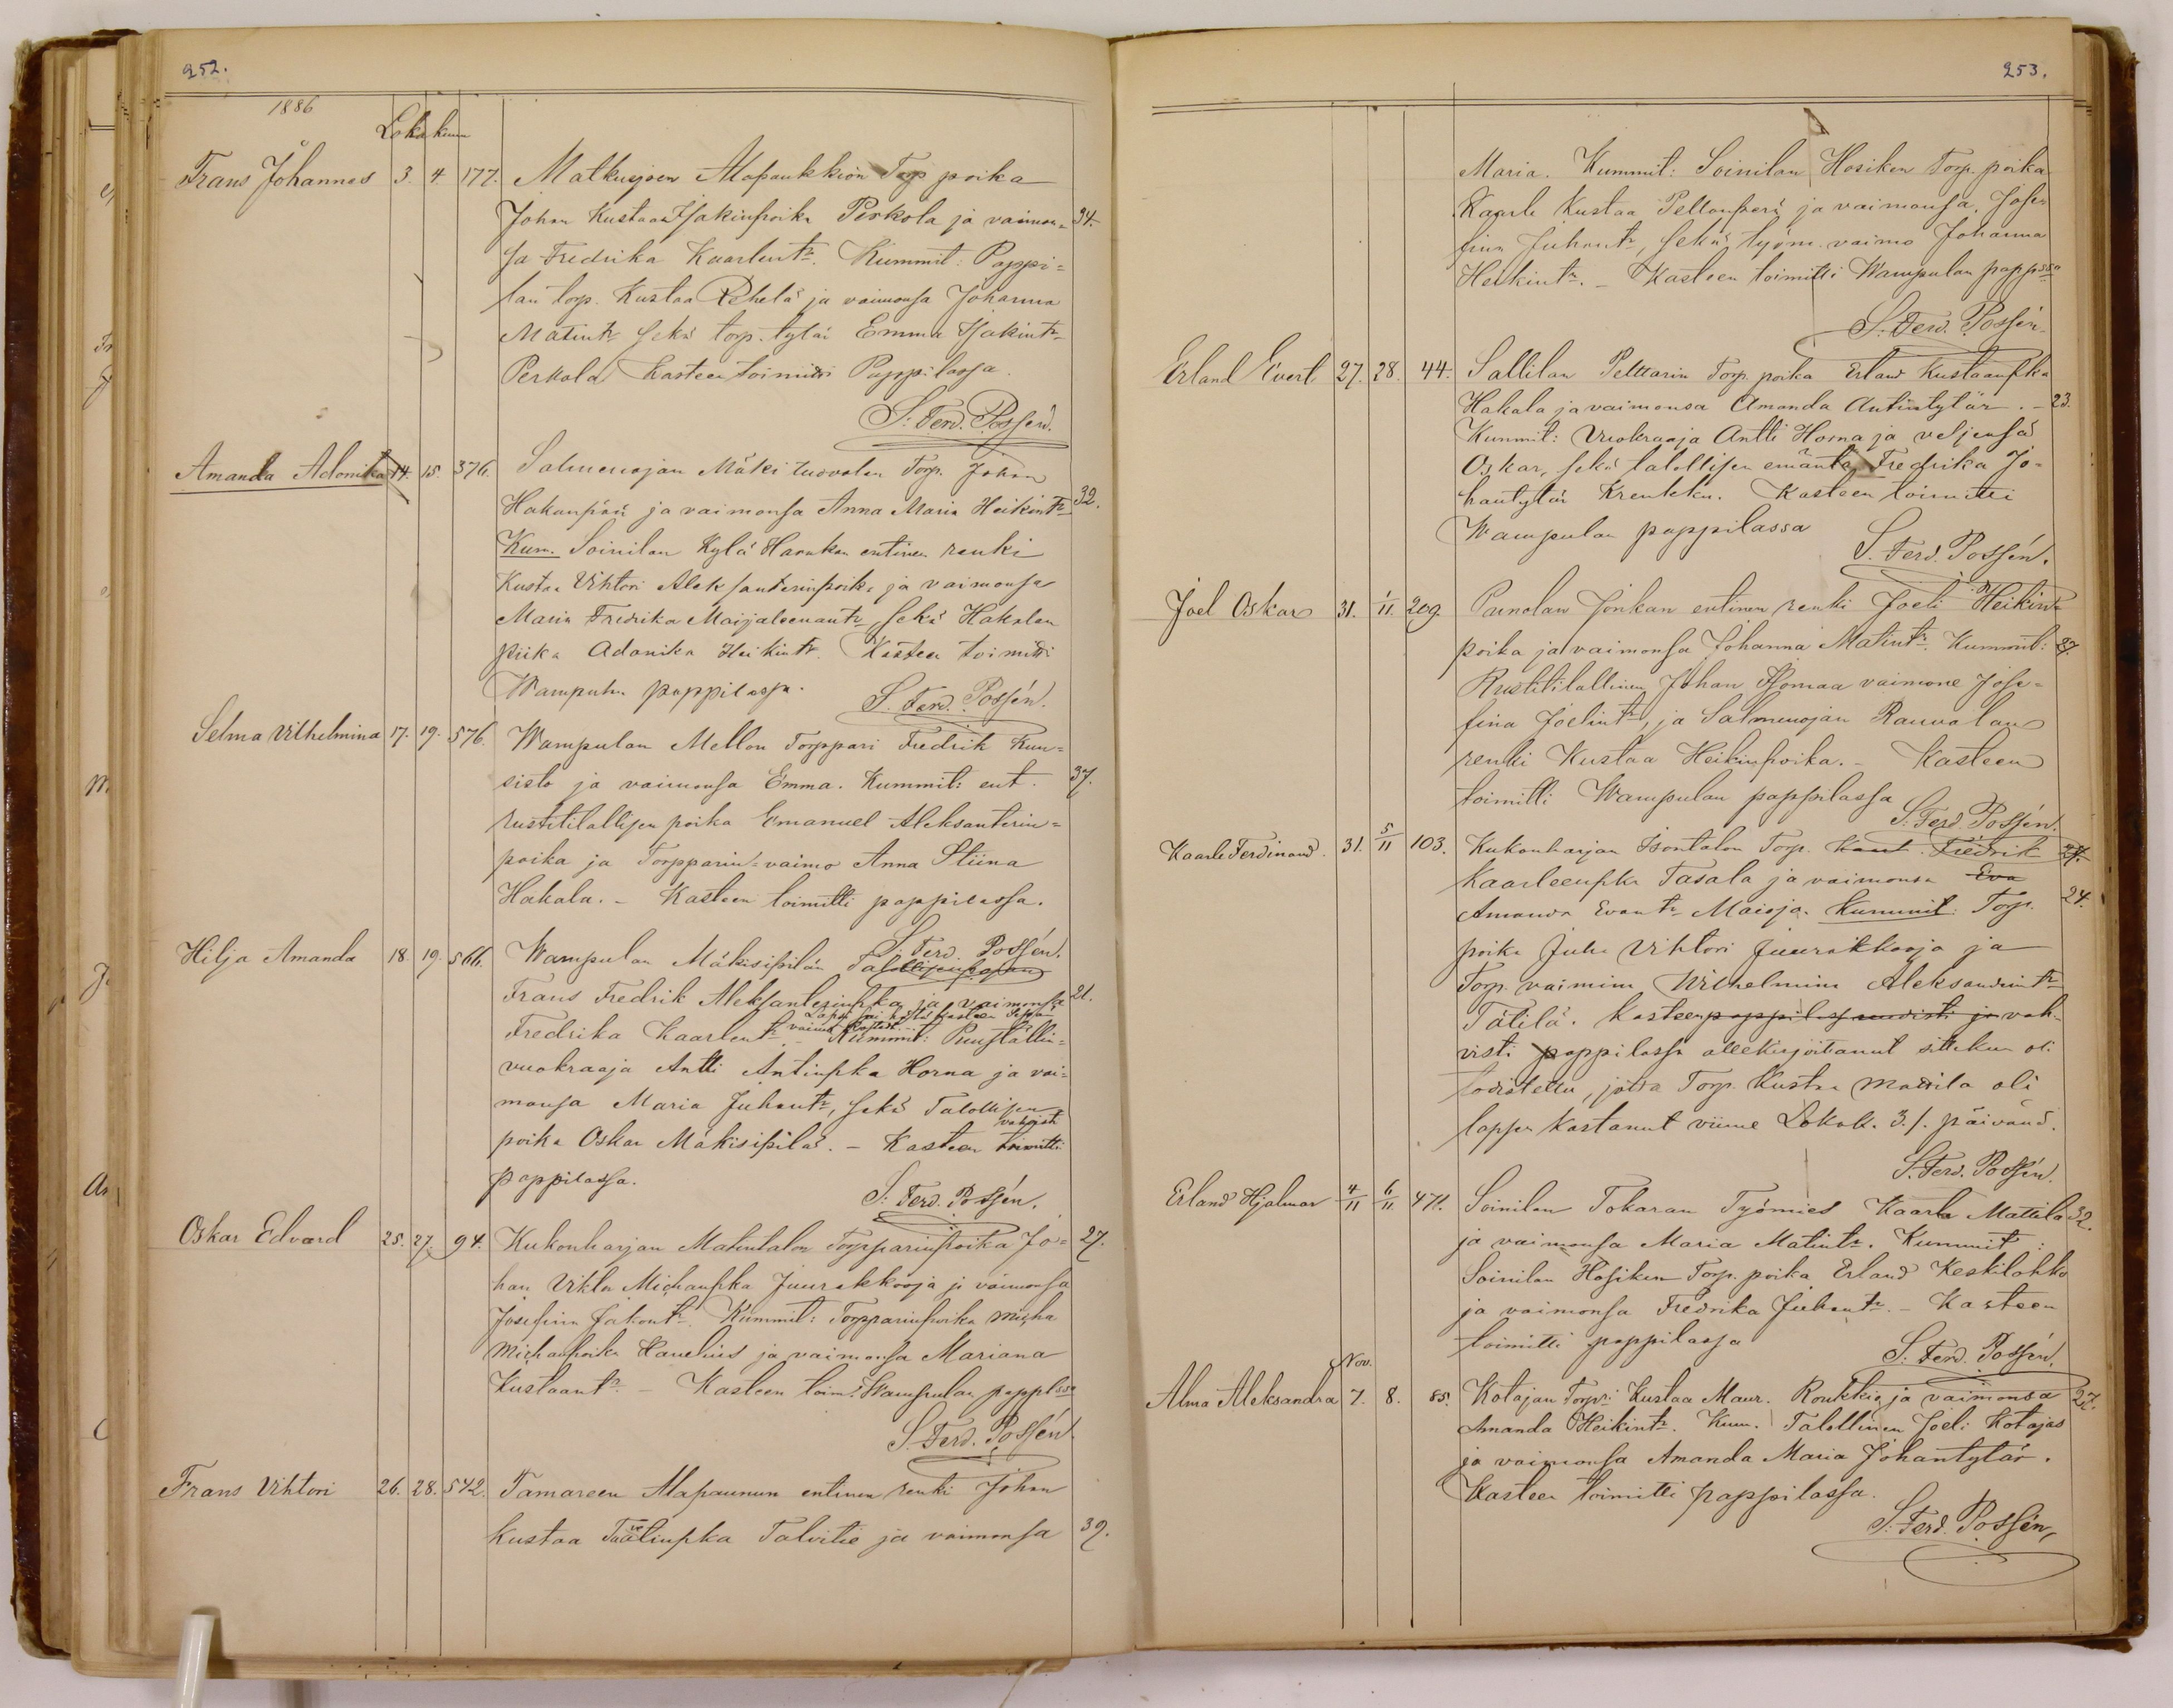 252.
1886
Lokakuun
Frans Johannes 3. 4 177. Matkusjoen Alapaukkion Torp poika
Johan Kustaa Isakinpoika Perkola ja vaimon= 34.
sa Fredrika Kaarlent. Kummit: Pappi=
lan torp. Kustaa Rehelä ja vaimonsa Johanna
Matint. sekä torp. tytär Emma Isakint.
Perkola Kasteen toimitti Pappilassa.
S: Ferd. Possén.
Amanda Adonika 14. 15. 376. Salmenojan Mäki Torp. Johan
Hakanpää ja vaimonsa Anna Maria Heikint. 32.
Kum. Soinilan Kylä entinen renki
Kustaa Vihtori Aleksanterinpoika ja vaimonsa
Maria Fredrika Maijaleenant. sekä Hakalan
piika Adonika Heikint. Kasteen toimitti
Wampulan pappilassa. S. Ferd. Possén.
Selma Vilhelmina 17. 19. 576. Wampulan Mellon Torppari Fredrik Kun=
sisto ja vaimonsa Emma. Kummit: ent. 37.
rustitilallisen poika Emanuel Aleksanterin=
poika ja Torpparin=vaimo Anna Stiina
Hakala. - Kasteen toimitti pappilassa.
S. Ferd. Possén.
Hilja Amanda 18. 19. 566. Wampulan Mäkisipilän Talollisenpojan
Frans Fredrik Aleksanterinpka ja vaimonsa 21.
Fredrika Kaarlent. - Kummit:
vuokraaja Antti Antinpka Horna ja vai=
monsa Maria Juhant., sekä Talollisen
vahvisti
poika Oskar Mäkisipilä. - Kasteen toimitti
pappilassa.
S: Ferd. Possén.
Oskar Edvard 25. 27. 94. Kukonharjan Matintalon Torpparinpoika Jo= 27.
han Viktor Michanpka Juurakkooja ja vaimonsa
Josefiina Jakont. Kummit: Torpparinpoika Micha
Michanpoika Hanelius ja vaimonsa Mariana
Kustaant. - Kasteen toim: Wampulan pappssa
S. Ferd. Possén
Frans Vihtori 26. 28. 542. Tamareen Alapaunun entinen renki Johan
Kustaa Taavetinpka Talvitie ja vaimonsa 39.
253.
Maria. Kummit: Soinilan Hosiken Torp. poika
Kaarle Kustaa Peltonperä ja vaimonsa, Jose
fina Juhant., sekä työm. vaimo Johanna
Heikint. - Kasteen toimitti Wampulan pappssa
S. Ferd. Possén.
Erland Evert 27. 28. 44. Sallilan Pelttarin Torp. poika Erland Kustaanpka
Hakala ja vaimonsa Amanda Antintytär. - 23.
Kummit: Vuokraaja Antti Horna ja veljensä
Oskar, sekä talollisen emäntä Fredrika Jo=
hantytär Krenkku. Kasteen toimitti
Wampulan pappilassa
S. Ferd. Possén.
Joel Oskar 31. 1/11. 209. Punolan Jonkan entinen renki Joeli Heikin
poika ja vaimonsa Johanna Matint. Kummit: 27.
Rustitilallinen Johan Isomaa vaimone Jose=
fina Joelint., ja Salmenojan Rauvolan
renki Kustaa Heikinpoika. - Kasteen
toimitti Wampulan pappilassa
S. Ferd. Possén.
Kaarle Ferdinand. 31. 5/11 103. Kukonharjan Isontalon Torp. Fredrik
Kaarleenpka Tasala ja vaimonsa Eva
Amanda Evant. Maisja. Kummit: Torp. 24.
poika Juha Vihtori Juurakkooja ja
Torp. vaimine Wilhelmina Aleksandrint.
Tätilä. Kasteen vah=
visti pappilassa allekirjoittanut sittekun oli
todistettu, jotta Torp. Kustaa Mattila oli
lapsen kastanut viime Lokak. 31. päivänä.
S. Ferd. Possén.
Erland Hjalmar 4/11 6/11. 471. Soinilan Tokaran Työmies Kaarle Mattila 32.
ja vaimonsa Maria Matint. Kummit:
Soinilan Hosiken Torp. poika Erland Keskilohko
ja vaimonsa Fredrika Juhant. - Kasteen
toimitti pappilassa
S: Ferd. Possén.
Nov.
Alma Aleksandra 7. 8. 85. Kotajan Torpri Kustaa Maur. Roukkia ja vaimonsa 27.
Amanda Heikint. Kum. Talollinen Joeli Kotajas
ja vaimonsa Amanda Maria Johantytär.
Kasteen toimitti pappilassa.
S: Ferd. Possén,